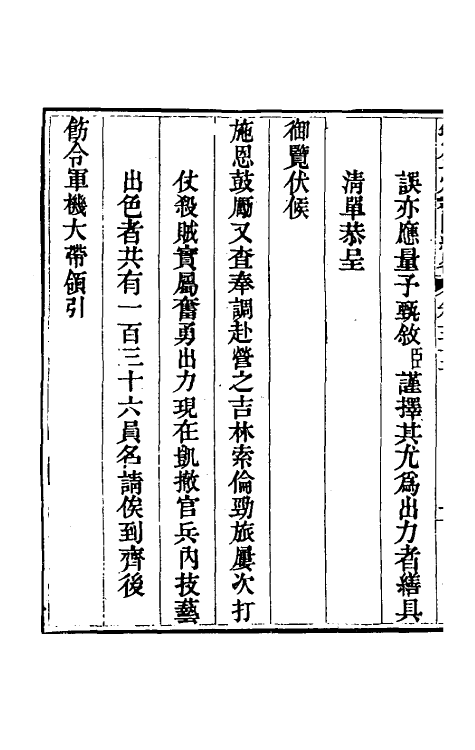 誤亦應量予甄敘臣謹擇其尤爲出力者繕具
清單恭呈
御覽伏候
施恩鼓勵又查奉調赴營之吉林索倫勁旅屢次打
仗殺賊實屬奮勇出力現在凱撤官兵內技藝
出色者共有一百三十六員名請俟到齊後
飭令軍機大帶領引